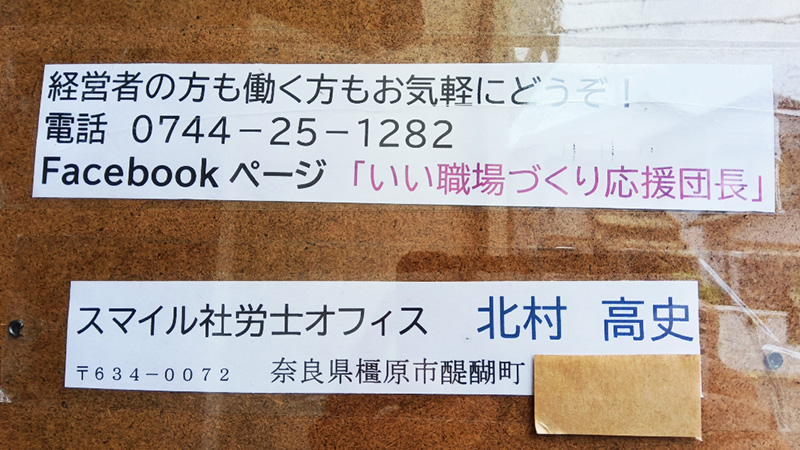 経営者の方も働く方もお気軽にどうぞ！
電話 0744－25－1282
Facebook ページ 「いい職場づくり応援団長」
スマイル社労士オフィス 北村 高史
〒634－0072 奈良県橿原市醍醐町